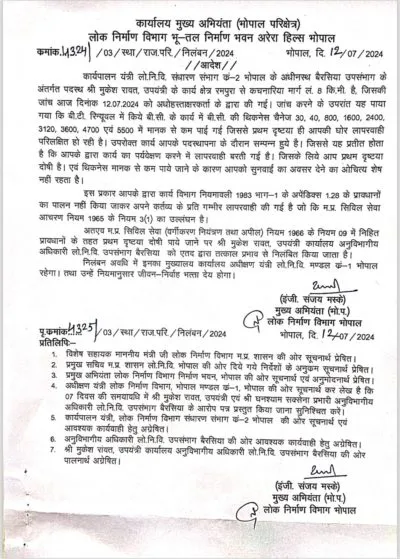 कार्यालय मुख्य अभियंता (भोपाल परिक्षेत्र)
लोक निर्माण विभाग भू–तल निर्माण भवन अरेरा हिल्स भोपाल
कमांक.4324/03/स्था/राज.परि./निलंबन/2024 भोपाल, दि. 12/07/2024
//आदेश//
कार्यपालन यंत्री लो.नि.वि. संधारण संभाग कं–2 भोपाल के अधीनस्थ बैरसिया उपसंभाग के
अंतर्गत पदस्थ श्री मुकेश रावत, उपयंत्री के कार्य क्षेत्र रमपुरा से कचनारिया मार्ग लं. 8 कि.मी. है, जिसकी
जांच आज दिनांक 12.07.2024 को अधोहस्ताक्षरकर्ता के द्वारा की गई। जांच करने के उपरांत यह पाया
गया कि बी.टी. रिन्यूवल में किये बी.सी. के कार्य में बी.सी. की थिकनेस चैनेज 30, 40, 800, 1600, 2400,
3120, 3600, 4700 एवं 5500 में मानक से कम पाई गई जिससे प्रथम दृष्टया ही आपकी घोर लापरवाही
परिलक्षित हो रही है। उपरोक्त कार्य आपके पदस्थापना के दौरान सम्पन्न हुये है। जिससे यह प्रतीत होता
है कि आपके द्वारा कार्य का पर्यवेक्षण करने में लापरवाही बरती गई है। जिसके लिये आप प्रथम दृष्टया
दोषी है। एवं थिकनेस मानक से कम पाये जाने के कारण आपको सुनवाई का अवसर देने का औचित्य शेष
नहीं रहता है।
इस प्रकार आपके द्वारा कार्य विभाग नियमावली 1983 भाग–1 के अपेंडिक्स 1.28 के प्रावधानों
का पालन नहीं किया जाकर अपने कर्तव्य के प्रति गम्भीर लापरवाही की गई है जो कि म.प्र. सिविल सेवा
आचरण नियम 1965 के नियम 3(1) का उल्लंघन है।
अतएव म.प्र. सिविल सेवा (वर्गीकरण नियंत्रण तथा अपील) नियम 1966 के नियम 09 में निहित
प्रावधानों के तहत प्रथम दृष्टया दोषी पाये जाने पर श्री मुकेश रावत, उपयंत्री कार्यालय अनुविभागीय
अधिकारी लो.नि.वि. उपसंभाग बैरसिया को एतद द्वारा तत्काल प्रभाव से निलंबित किया जाता है।
निलंबन अवधि में इनका मुख्यालय कार्यालय अधीक्षण यंत्री लो.नि.वि. मण्डल कं–1 भोपाल
रहेगा। तथा उन्हें नियमानुसार जीवन–निर्वाह भत्ता देय होगा।
(इंजी. संजय मस्के)
मुख्य अभियंता (भो.प.)
लोक निर्माण विभाग भोपाल
पृ.कमांक.4325/03/स्था/राज.परि./निलंबन/2024 भोपाल, दि. 12/07/2024
प्रतिलिपिः–
1. विशेष सहायक माननीय मंत्री जी लोक निर्माण विभाग म.प्र. शासन की ओर सूचनार्थ प्रेषित।
2. प्रमुख सचिव म.प्र. शासन लो.नि.वि. भोपाल की ओर दिये गये निर्देशों के अनुक्रम सूचनार्थ प्रेषित।
3. प्रमुख अभियंता लोक निर्माण विभाग निर्माण भवन, भोपाल की ओर सूचनार्थ एवं अनुमोदनार्थ प्रेषित।
4. अधीक्षण यंत्री लोक निर्माण विभाग, भोपाल मण्डल कं–1, भोपाल की ओर सूचनार्थ कर लेख है कि
07 दिवस की समयावधि में श्री मुकेश रावत, उपयंत्री एवं श्री घनश्याम सक्सेना प्रभारी अनुविभागीय
अधिकारी लो.नि.वि. उपसंभाग बैरसिया के आरोप पत्र प्रस्तुत किया जाना सुनिश्चित करें।
5. कार्यपालन यंत्री, लोक निर्माण विभाग संधारण संभाग कं–2 भोपाल की ओर सूचनार्थ एवं
आवश्यक कार्यवाही हेतु अग्रेषित।
6. अनुविभागीय अधिकारी लो.नि.वि. उपसंभाग बैरसिया की ओर आवश्यक कार्यवाही हेतु अग्रेषित।
7. श्री मुकेश रावत, उपयंत्री कार्यालय अनुविभागीय अधिकारी लो.नि.वि. उपसंभाग बैरसिया की ओर
पालनार्थ अग्रेषित।
(इंजी. संजय मस्के)
मुख्य अभियंता (भो.प.)
लोक निर्माण विभाग भोपाल